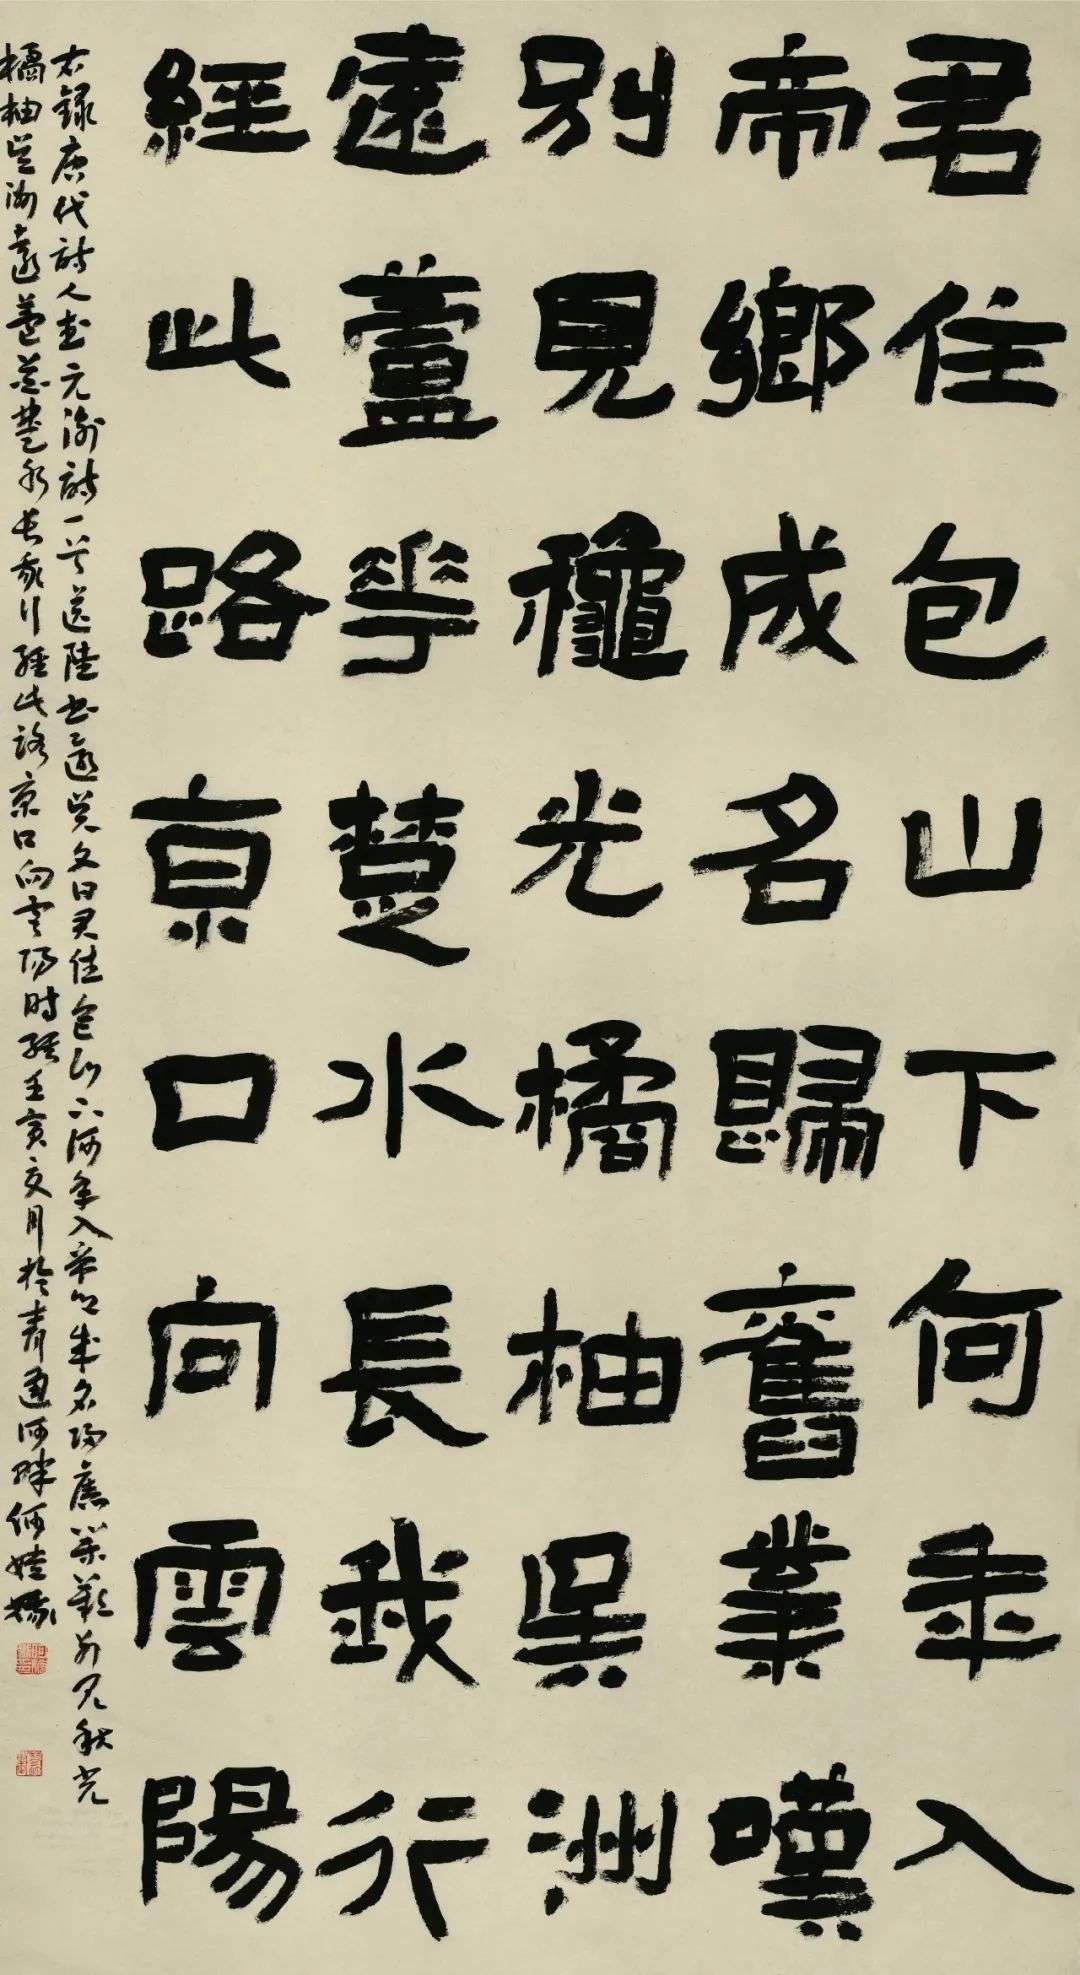 君住包山下何年入
帝鄉成名歸舊業嘆
別見穐光橘柚吳洲
遠蘆花楚水長我行
經此路京口向雲陽
右錄唐代詩人武元衡詩一首送陸書還吳文曰君住包山下何年入帝鄉成名歸舊業歎別見秋光
橘柚吳洲遠蘆花楚水長我行經此路京口向雲陽時維壬寅夏月於青通河畔何